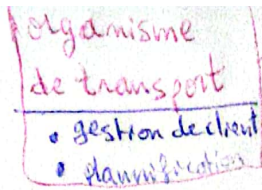 organisme
de transport
• gestion de client
• plannification